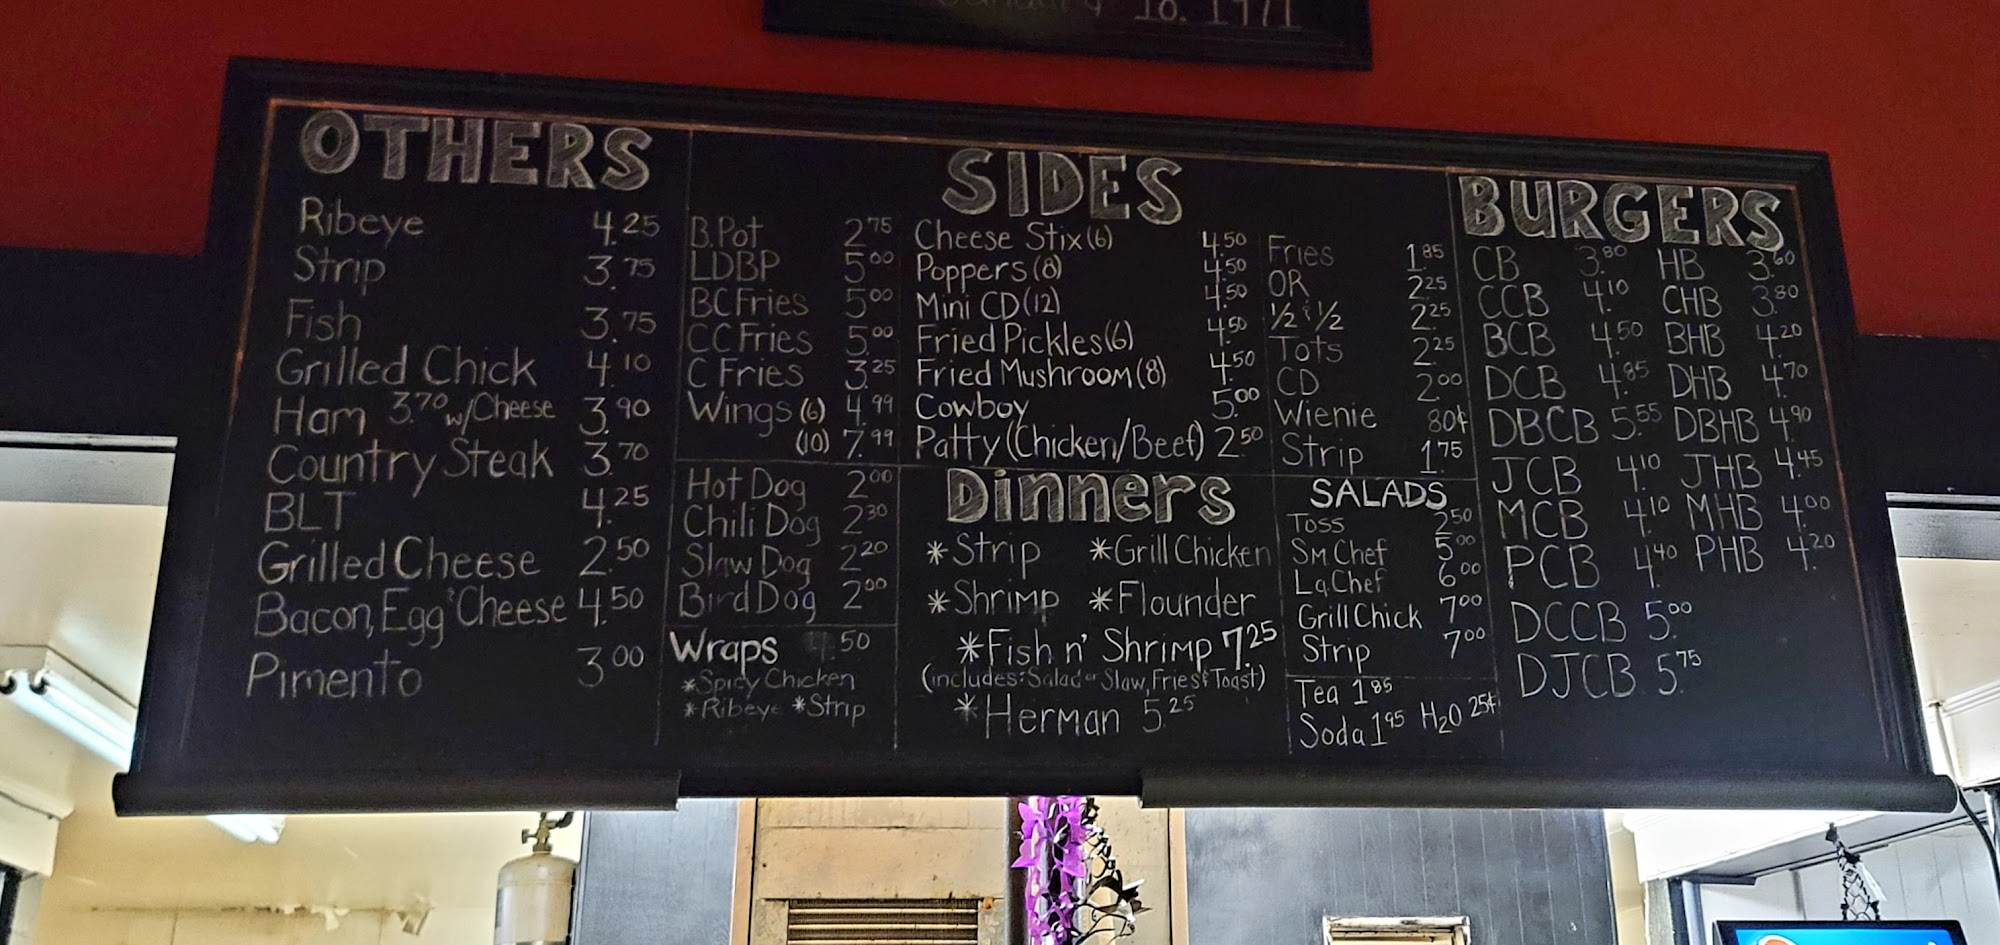 18, 1971
OTHERS
Ribeye 4.25
Strip 3.75
Fish 3.75
Grilled Chick 4.10
Ham 3.70 w/Cheese 3.90
Country Steak 3.70
BLT 4.25
Grilled Cheese 2.50
Bacon, Egg & Cheese 4.50
Pimento 3.00
SIDES
B.Pot 2.75
LDBP 5.00
BC Fries 5.00
CC Fries 5.00
C Fries 3.25
Wings (6) 4.99
(10) 7.99
Cheese Stix (6) 4.50
Poppers (8) 4.50
Mini CD (12) 4.50
Fried Pickles (6) 4.50
Fried Mushroom (8) 4.50
Cowboy 5.00
Patty (Chicken/Beef) 2.50
Fries 1.85
OR 2.25
½ & ½ 2.25
Tots 2.25
CD 2.00
Wienie 80¢
Strip 1.75
Hot Dog 2.00
Chili Dog 2.30
Slaw Dog 2.20
Bird Dog 2.00
Wraps 4.50
*Spicy Chicken
*Ribeye *Strip
Dinners
*Strip *Grill Chicken
*Shrimp *Flounder
*Fish n' Shrimp 7.25
(includes: Salad or Slaw, Fries & Toast)
*Herman 5.25
SALADS
Toss 2.50
Sm Chef 5.00
Lg Chef 6.00
Grill Chick 7.00
Strip 7.00
Tea 1.85
Soda 1.95 H2O 25¢
BURGERS
CB 3.80 HB 3.60
CCB 4.10 CHB 3.80
BCB 4.50 BHB 4.20
DCB 4.85 DHB 4.70
DBCB 5.55 DBHB 4.90
JCB 4.10 JHB 4.45
MCB 4.10 MHB 4.00
PCB 4.40 PHB 4.20
DCCB 5.00
DJCB 5.75